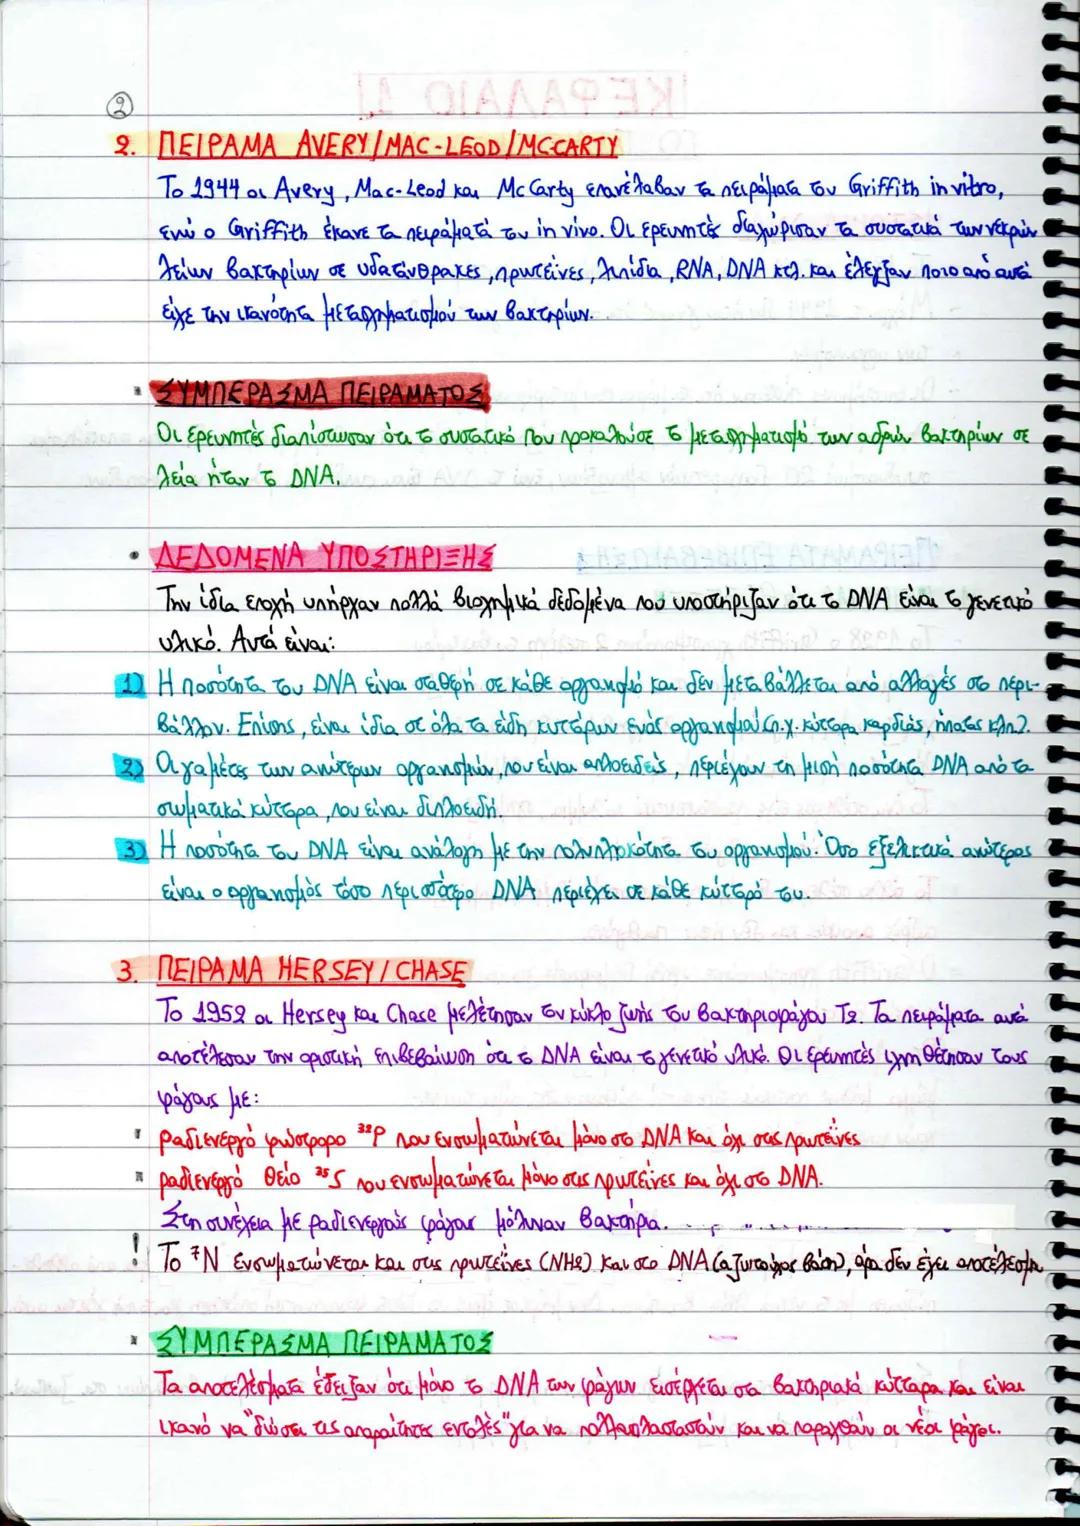 2
2. ΠΕΙΡΑΜΑ AVERY/MAC-LEOD/MCCARTY
Το 1944 οι Avery, Mac-Leod και McCarty επανέλαβαν τα πειράματα του Griffith in vitro,
ενώ ο Griffith έκανε τα πειράματά του in vivo. Οι ερευνητές διαχώρισαν τα συστατικά των νεκρών
λείων βακτηρίων σε υδατάνθρακες, πρωτεΐνες, λιπίδια, RNA, DNA κτλ. και έλεγξαν ποιο από αυτά
είχε την ικανότητα μετασχηματισμού των βακτηρίων.
ΣΥΜΠΕΡΑΣΜΑ ΠΕΙΡΑΜΑΤΟΣ
Οι ερευνητές διαπίστωσαν ότι το συστατικό που προκαλούσε το μετασχηματισμό των αδρών βακτηρίων σε
λεία ήταν το DNA.
• ΔΕΔΟΜΕΝΑ ΥΠΟΣΤΗΡΙΞΗΣ
Την ίδια εποχή υπήρχαν πολλά βιοχημικά δεδομένα που υποστήριζαν ότι το DNA είναι το γενετικό
υλικό. Αυτά είναι:
1) Η ποσότητα του DNA είναι σταθερή σε κάθε οργανισμό και δεν μεταβάλλεται από αλλαγές στο περι-
βάλλον. Επίσης, είναι ίδια σε όλα τα είδη κυττάρων ενός οργανισμού (π.χ. κύτταρα καρδιάς, ήπατος κλπ).
2) Οι γαμέτες των ανώτερων οργανισμών, που είναι απλοειδείς, περιέχουν τη μισή ποσότητα DNA από τα
σωματικά κύτταρα, που είναι διπλοειδή.
3) Η ποσότητα του DNA είναι ανάλογη με την πολυπλοκότητα του οργανισμού. Όσο εξελικτικά ανώτερος
είναι ο οργανισμός τόσο περισσότερο DNA περιέχει σε κάθε κύτταρό του.
3. ΠΕΙΡΑΜΑ HERSEY/CHASE
Το 1952 οι Hersey και Chase μελέτησαν τον κύκλο ζωής του βακτηριοφάγου T2. Τα πειράματα αυτά
αποτέλεσαν την οριστική επιβεβαίωση ότι το DNA είναι το γενετικό υλικό. Οι ερευνητές ιχνηθέτησαν τους
φάγους με:
ραδιενεργό φώσφορο ³²P που ενσωματώνεται μόνο στο DNA και όχι στις πρωτεΐνες
ραδιενεργό θείο ³⁵S που ενσωματώνεται μόνο στις πρωτεΐνες και όχι στο DNA.
Στη συνέχεια με ραδιενεργούς φάγους μόλυναν βακτήρια.
! Το ⁷N ενσωματώνεται και στις πρωτεΐνες (NH2) και στο DNA (αζωτούχος βάση), άρα δεν έχει αποτέλεσμα
ΣΥΜΠΕΡΑΣΜΑ ΠΕΙΡΑΜΑΤΟΣ
Τα αποτελέσματα έδειξαν ότι μόνο το DNA των φάγων εισέρχεται στα βακτηριακά κύτταρα και είναι
ικανό να "δώσει τις απαραίτητες εντολές" για να πολλαπλασιαστούν και να παραχθούν οι νέοι φάγοι.